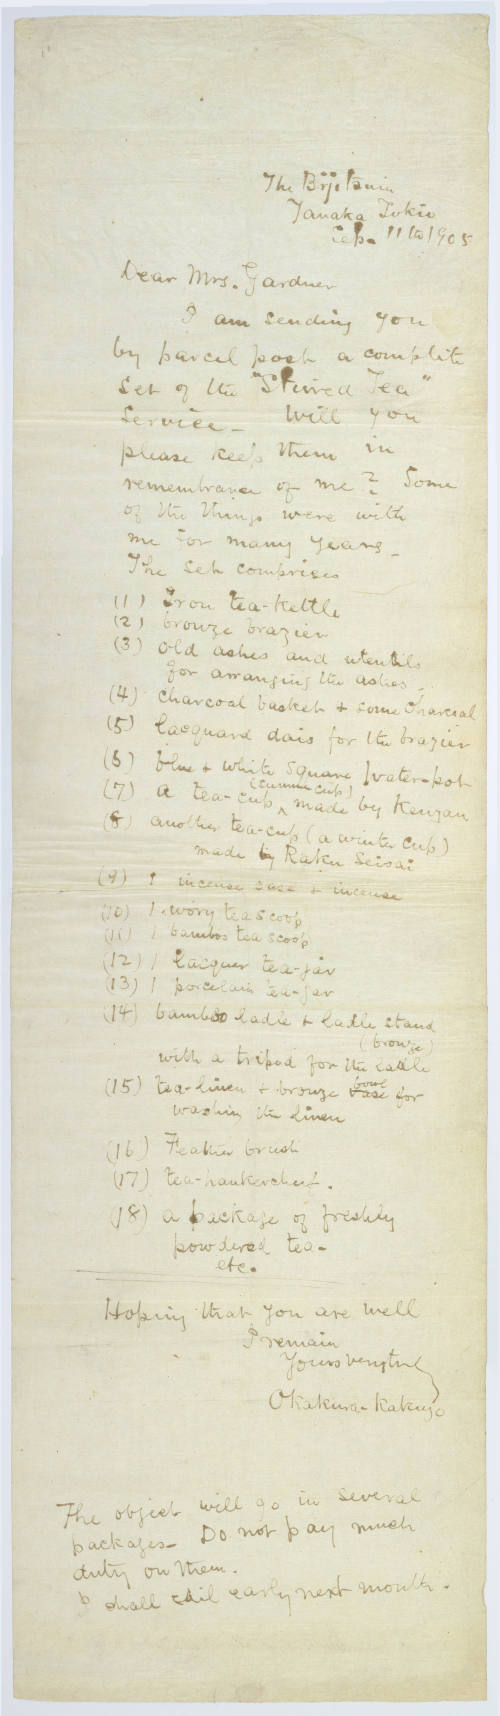 The Bijitsuin
Tanaka Tokio
Sep. 11th 1905
Dear Mrs. Gardner
I am sending you
by parcel post a complete
set of the "Stirred Tea"
Service – Will you
please keep them in
remembrance of me? Some
of the things were with
me for many years –
The set comprises
(1) Iron tea-kettle
(2) bronze brazier
(3) old ashes and utentils
for arranging the ashes.
(4) charcoal basket + some charcoal
(5) lacquard dais for the brazier
(6) blue + white square water-pot
(summer cup)
(7) a tea-cup ^ made by Kenzan
(8) another tea-cup (a winter cup)
made by Raku Seisai
(9) 1 incense case + incense
(10) 1 ivory tea scoop
(11) 1 bamboo tea scoop
(12) 1 lacquer tea-jar
(13) 1 porcelain tea-jar
(14) bamboo ladle + ladle stand
(bronze)
with a tripod for the ladle
(15) tea-linen + bronze bowl for
washing the linen
(16) Feather brush
(17) tea-hankercheif.
(18) a package of freshly
powdered tea –
etc.
Hoping that you are well
I remain
Yours very truly
Okakura-Kakuzo
The object will go in several
packages – Do not pay much
duty on them.
I shall sail early next month.